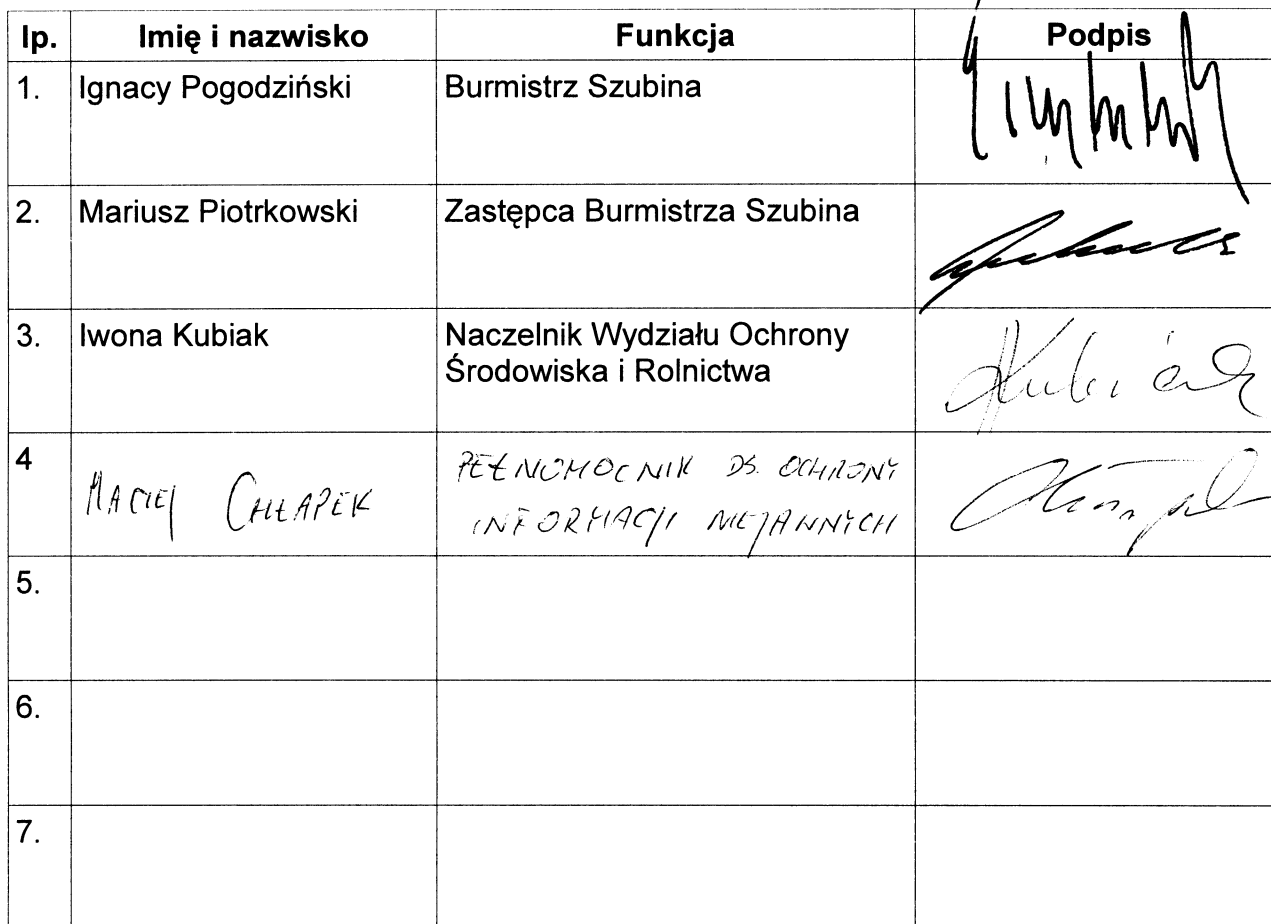 lp. Imię i nazwisko Funkcja Podpis
1. Ignacy Pogodziński Burmistrz Szubina
2. Mariusz Piotrkowski Zastępca Burmistrza Szubina
3. Iwona Kubiak Naczelnik Wydziału Ochrony
Środowiska i Rolnictwa
Kubiak
4 MACIEJ CHŁAPEK PEŁNOMOCNIK DS. OCHRONY
INFORMACJI NIEJAWNYCH
5.
6.
7.